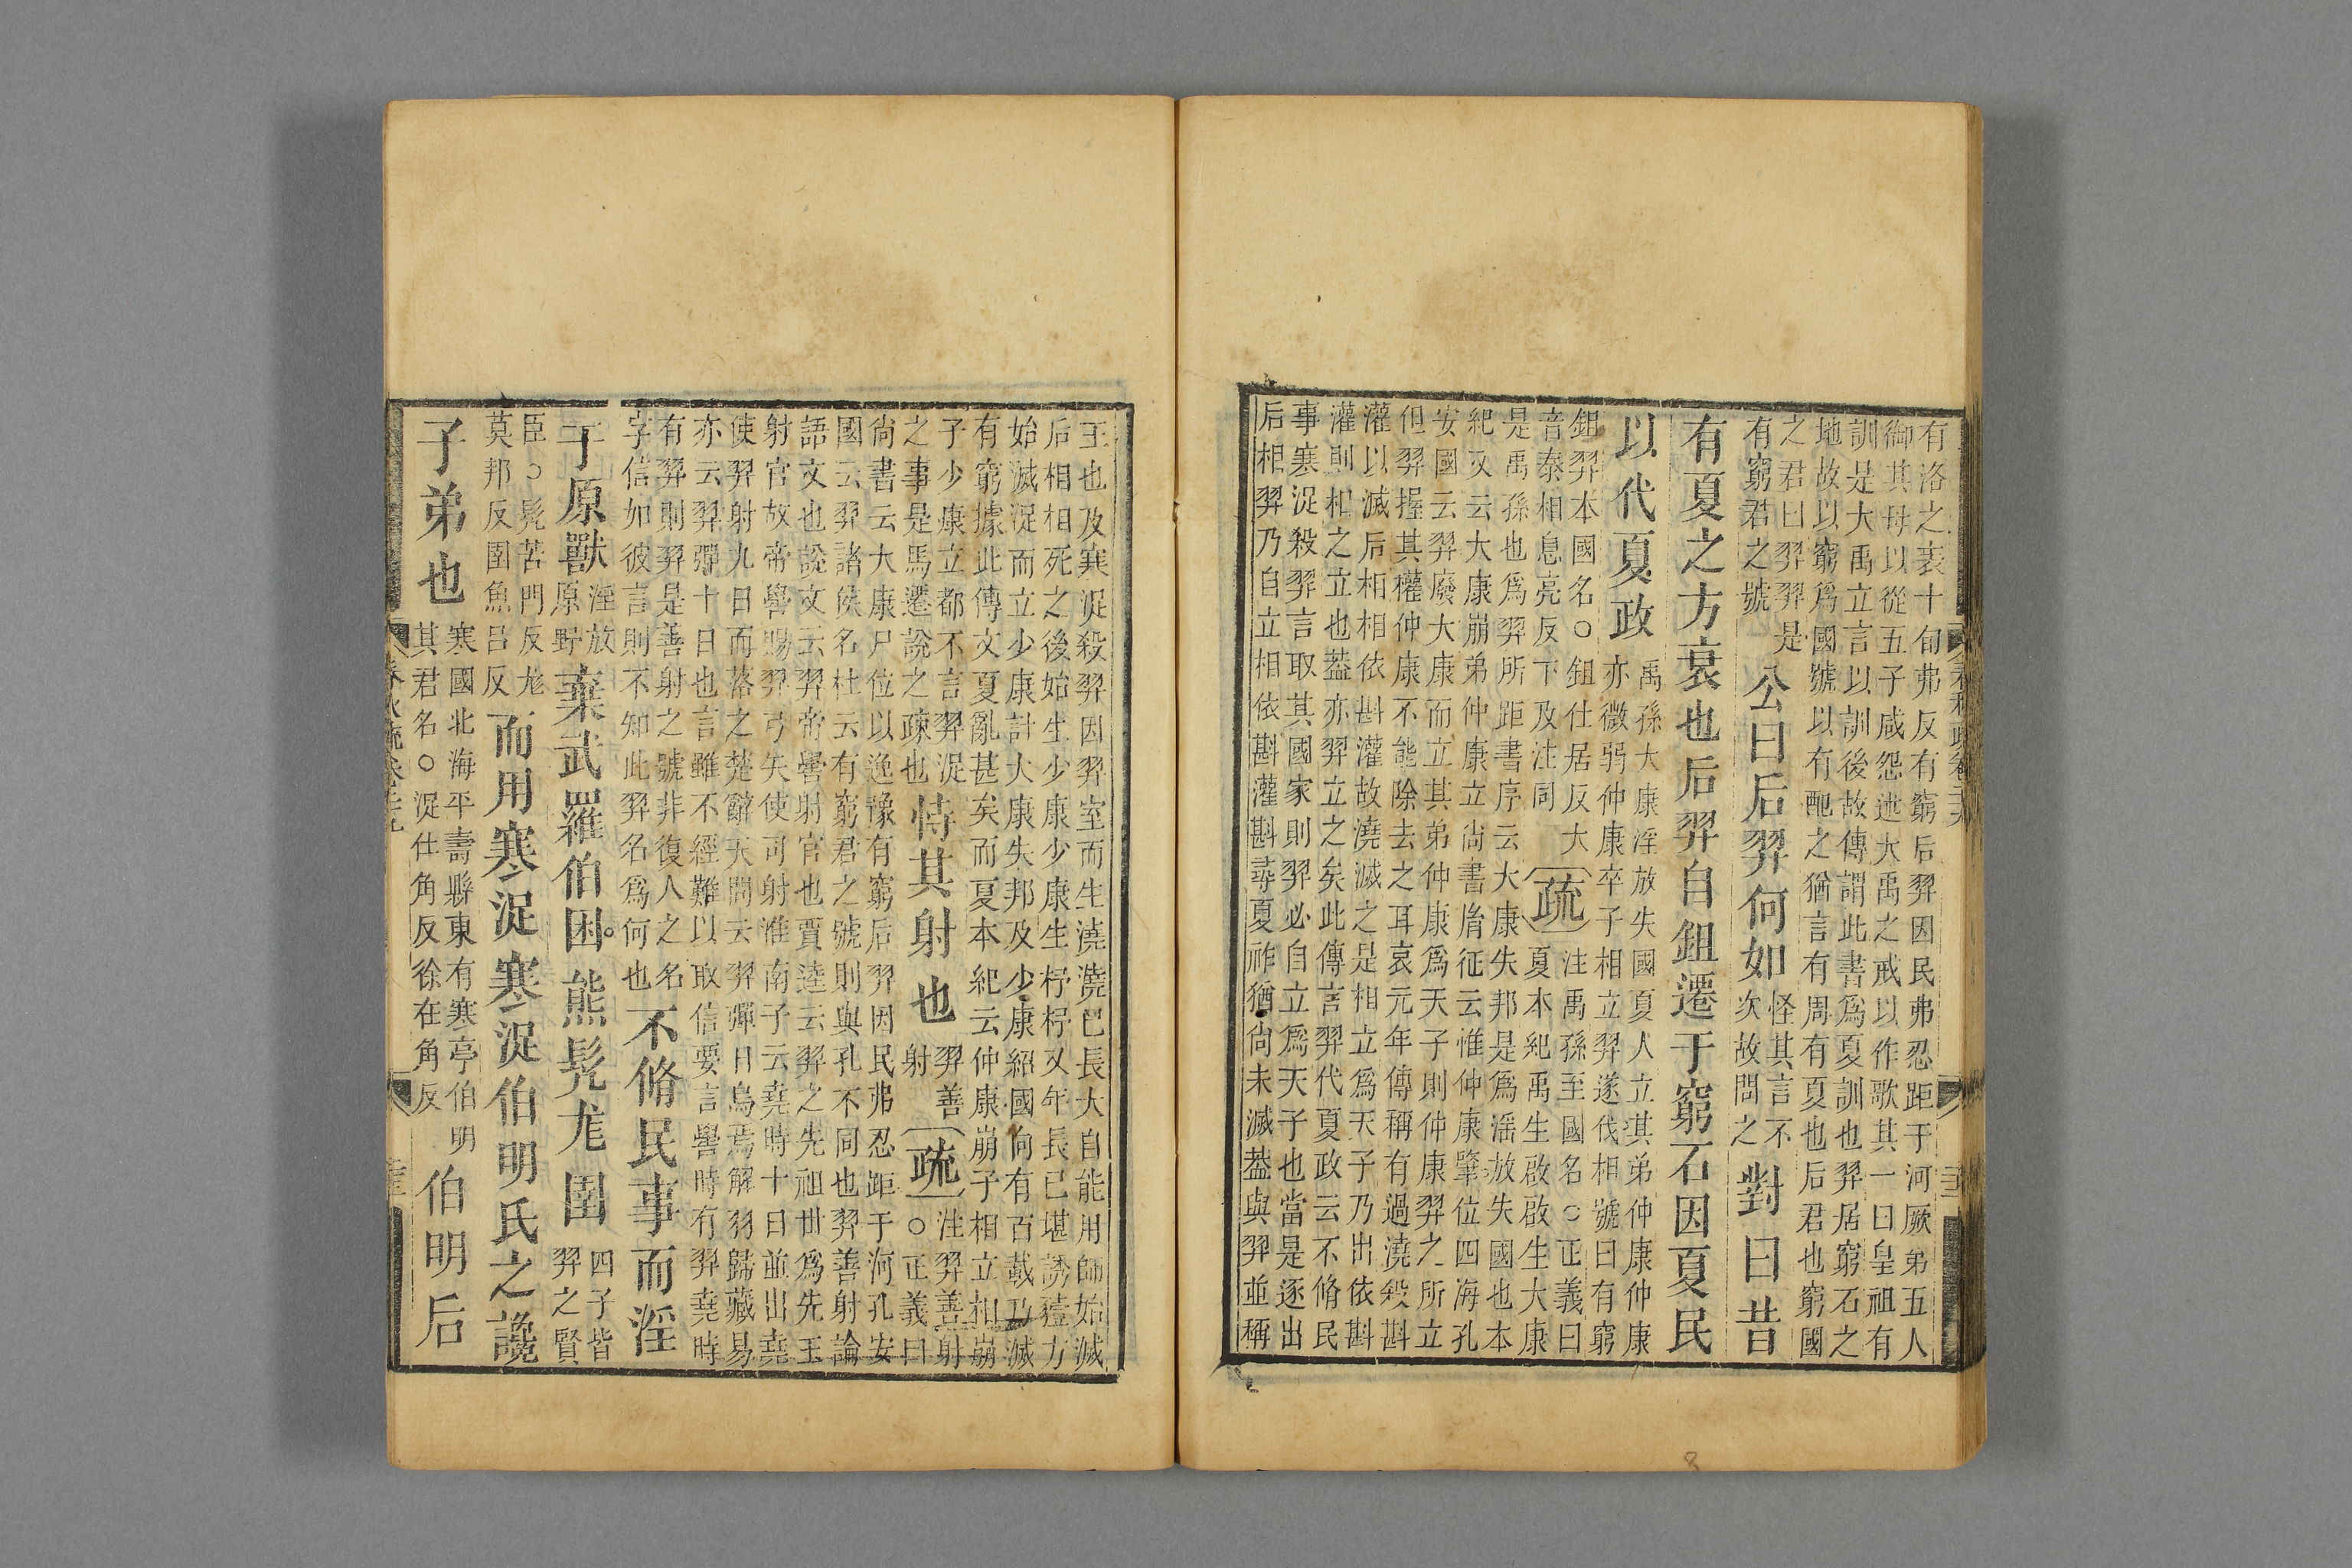 有洛之表十旬弗反有窮后羿因民弗忍距于河厥弟五人
御其母以從五子咸怨述大禹之戒以作歌其一曰皇祖有
訓是大禹立言以訓後故傳謂此書爲夏訓也羿居窮石之
地故以窮爲國號以有配之猶言有周有夏也后君也窮國
之君曰羿羿是
有窮君之號
公曰后羿何如
怪其言不
次故問之
對曰昔
有夏之方衰也后羿自鉏遷于窮石因夏民
以代夏政
禹孫大康淫放失國夏人立其弟仲康仲康
亦微弱仲康卒子相立羿遂代相號曰有窮
鉏羿本國名○鉏仕居反大
音泰相息亮反下及注同
疏
注禹孫至國名○正義曰
夏本紀禹生啟啟生大康
是禹孫也爲羿所距書序云大康失邦是爲滛放失國也本
紀又云大康崩弟仲康立尚書胤征云惟仲康肇位四海孔
安國云羿廢大康而立其弟仲康爲天子則仲康羿之所立
但羿握其權仲康不能除去之耳哀元年傳稱有過澆殺斟
灌以滅后相相依斟灌故澆滅之是相立爲天子乃出依斟
灌則相之立也葢亦羿立之矣此傳言羿代夏政云不脩民
事寒浞殺羿言取其國家則羿必自立爲天子也當是逐出
后相羿乃自立相依斟灌斟尋夏祚猶尚未滅葢與羿並稱
王也及寒浞殺羿因羿室而生澆澆巳長大自能用師始滅
后相相死之後始生少康少康生杼杼又年長已堪誘豷方
始滅浞而立少康計大康失邦及少康紹國向有百載乃滅
有窮據此傳文夏亂甚矣而夏本紀云仲康崩子相立相崩
子少康立都不言羿浞
之事是馬遷說之疎也
恃其射也
羿善
射
疏
注羿善射
○正義曰
尚書云大康尸位以逸豫有窮后羿因民弗忍距于河孔安
國云羿諸侯名杜云有窮君之號則與孔不同也羿善射論
語文也說文云羿帝嚳射官也賈逵云羿之先祖世爲先王
射官故帝嚳賜羿弓矢使司射淮南子云堯時十日並出堯
使羿射九日而落之楚辭天問云羿彈日烏焉解羽歸藏易
亦云羿彈十日也言雖不經難以取信要言嚳時有羿堯時
有羿則羿是善射之號非復人之名
字信如彼言則不知此羿名爲何也
不脩民事而淫
于原獸
淫放
原野
棄武羅伯困。熊髡尨圉
四子皆
羿之賢
臣○髡苦門反尨
莫邦反圉魚呂反
而用寒浞寒浞伯明氏之讒
子弟也
寒國北海平壽縣東有寒亭伯明
其君名○浞仕角反徐在角反
伯明后